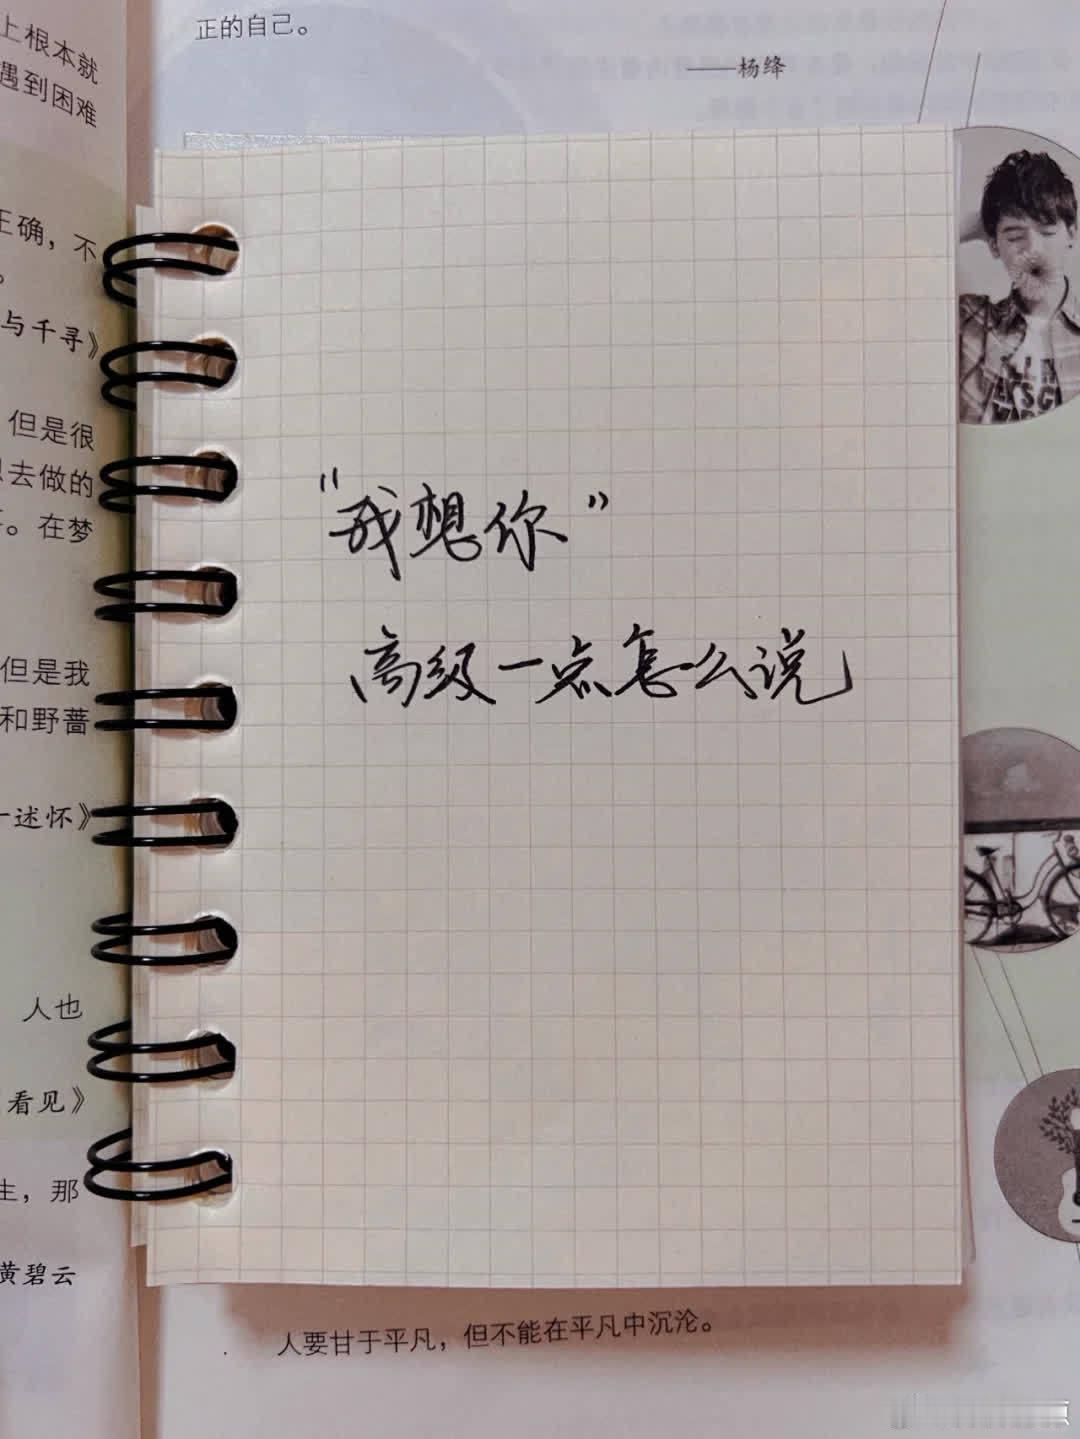 正的自己。
——杨绛
上根本就
遇到困难
正确，不
。
与千寻》
但是很
去做的
。在梦
但是我
和野蔷
述怀》
人也
看见》
生，那
黄碧云
“我想你”
高级一点怎么说
人要甘于平凡，但不能在平凡中沉沦。